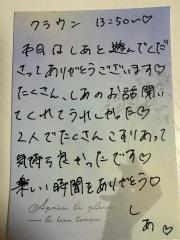 クラウン 13:50〜♡
本日はしあと遊んでくだ
さってありがとうございます♡
たくさん、しあのお話聞い
てくれてうれしかった♡
2人でたくさんこすりあって
気持ち良かったです♡
楽しい時間をありがとう♡
Après la pluie
le beau temps.
しあ♡